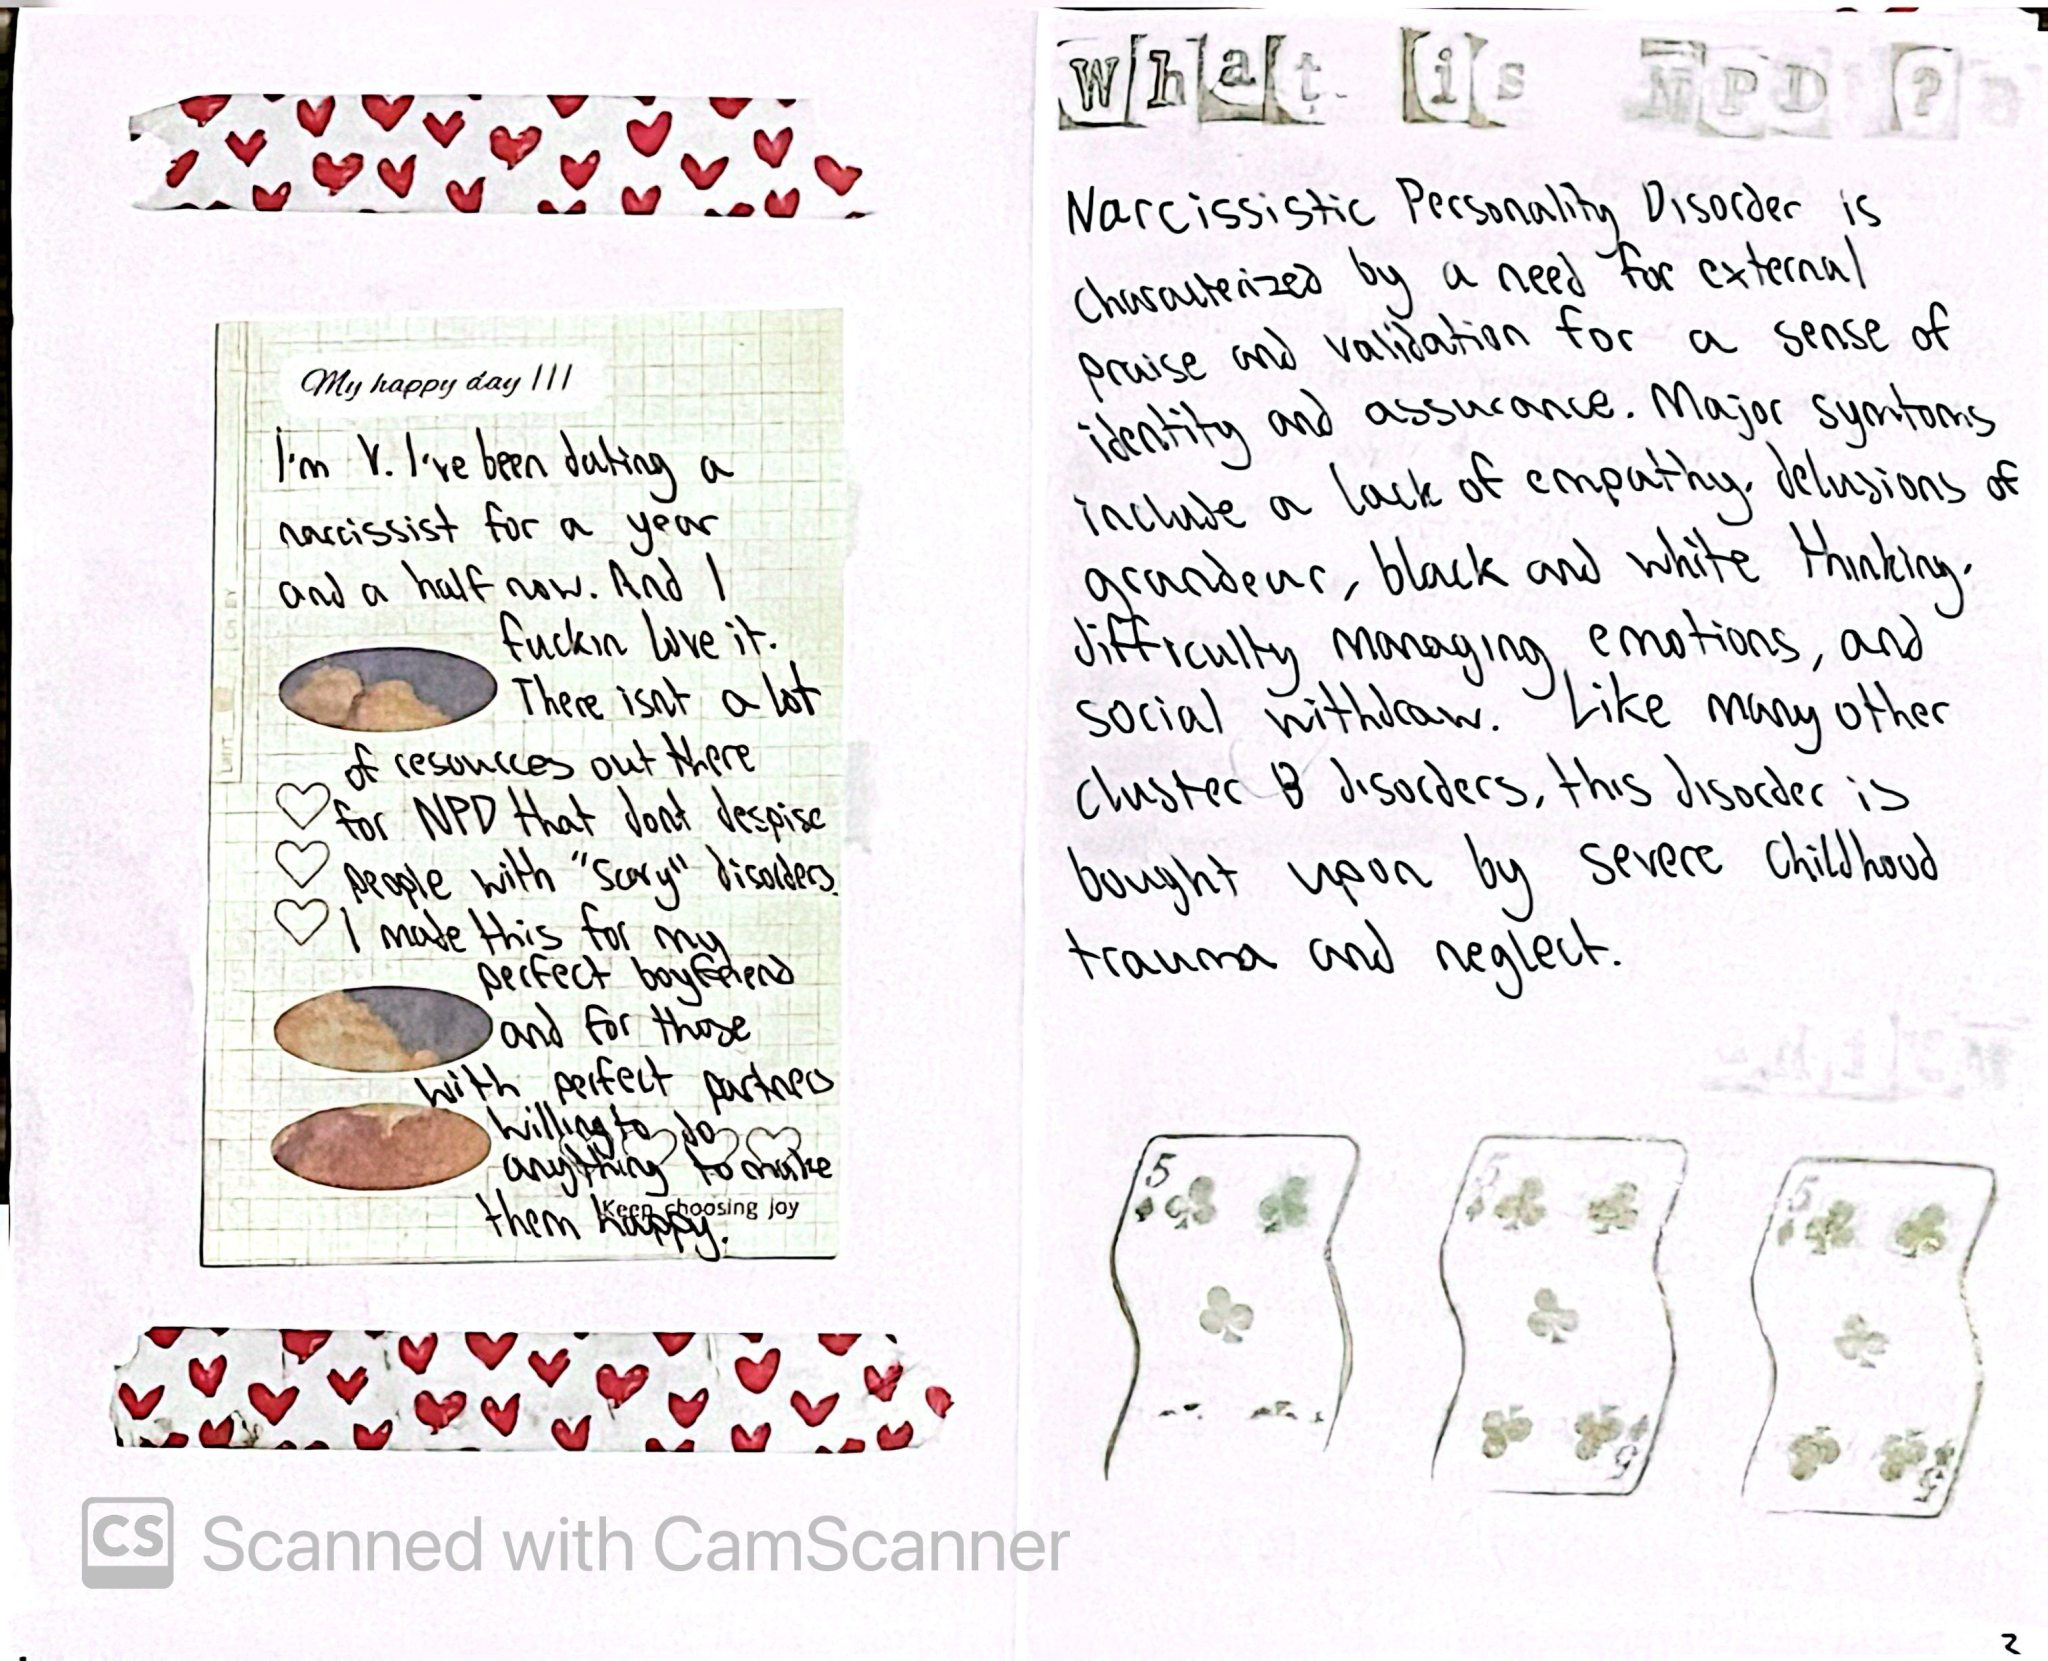 My happy day !!!
I'm V. I've been dating a
narcissist for a year
and a half now. And I
fuckin love it.
There isnt a lot
of resources out there
for NPD that dont despise
people with "scary" disorders.
I made this for my
perfect boyfriend
and for those
with perfect partners
willing to do
anything to make
Keep choosing joy
them happy.
What is NPD ?
Narcissistic Personality Disorder is
characterized by a need for external
praise and validation for a sense of
identity and assurance. Major symtoms
include a lack of empathy, delusions of
grandeur, black and white thinking,
difficulty managing emotions, and
social withdraw. Like many other
cluster B disorders, this disorder is
bought upon by severe childhood
trauma and neglect.
5 5 5
5 5
CS Scanned with CamScanner
2